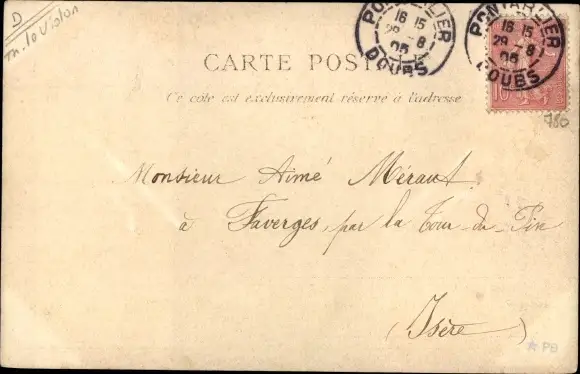 D
m. le Violon
PONTARLIER
16 15
29 - 8
05
DOUBS
PONTARLIER
16 15
29 - 8
05
DOUBS
10
CARTE POSTALE
Ce côté est exclusivement réservé à l'adresse
780
Monsieur Aimé Méraut
à Faverges, par la Tour-du-Pin
(Isère)
PB